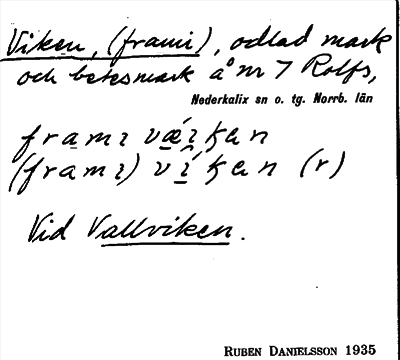 Viken, (frami), odlad mark
och betesmark å nr 7 Rolfs,
Nederkalix sn o. tg. Norrb. län
framɿ vǽɿꞓən
(framɿ) vɿ̂́ꞓən (r)
Vid Vallviken.
RUBEN DANIELSSON 1935